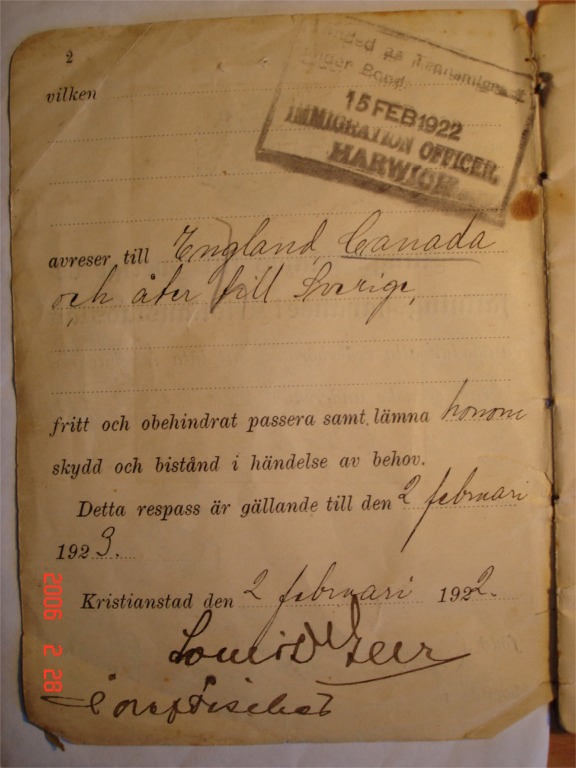 2
vilken
Landed as Transmigrant
under Bond.
15 FEB 1922
IMMIGRATION OFFICER
HARWICH
avreser till England, Canada
och åter till Sverige,
fritt och obehindrat passera samt lämna honom
skydd och bistånd i händelse av behov.
Detta respass är gällande till den 2 februari
1923.
Kristianstad den 2 februari 1922.
Louis De Geer
2006 2 28